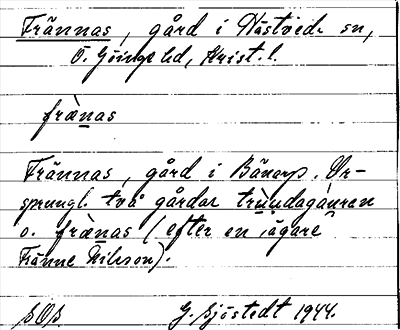 Frännas, gård i Nästved sn,
Ö. Göinge hd, Krist. l.
frànas
Frännas, gård i Bänarp. Ur-
sprungl. två gårdar trùndagàuren
o. frànas (efter en "ägare"
Fränne Nilsson).
G. Sjöstedt 1944.